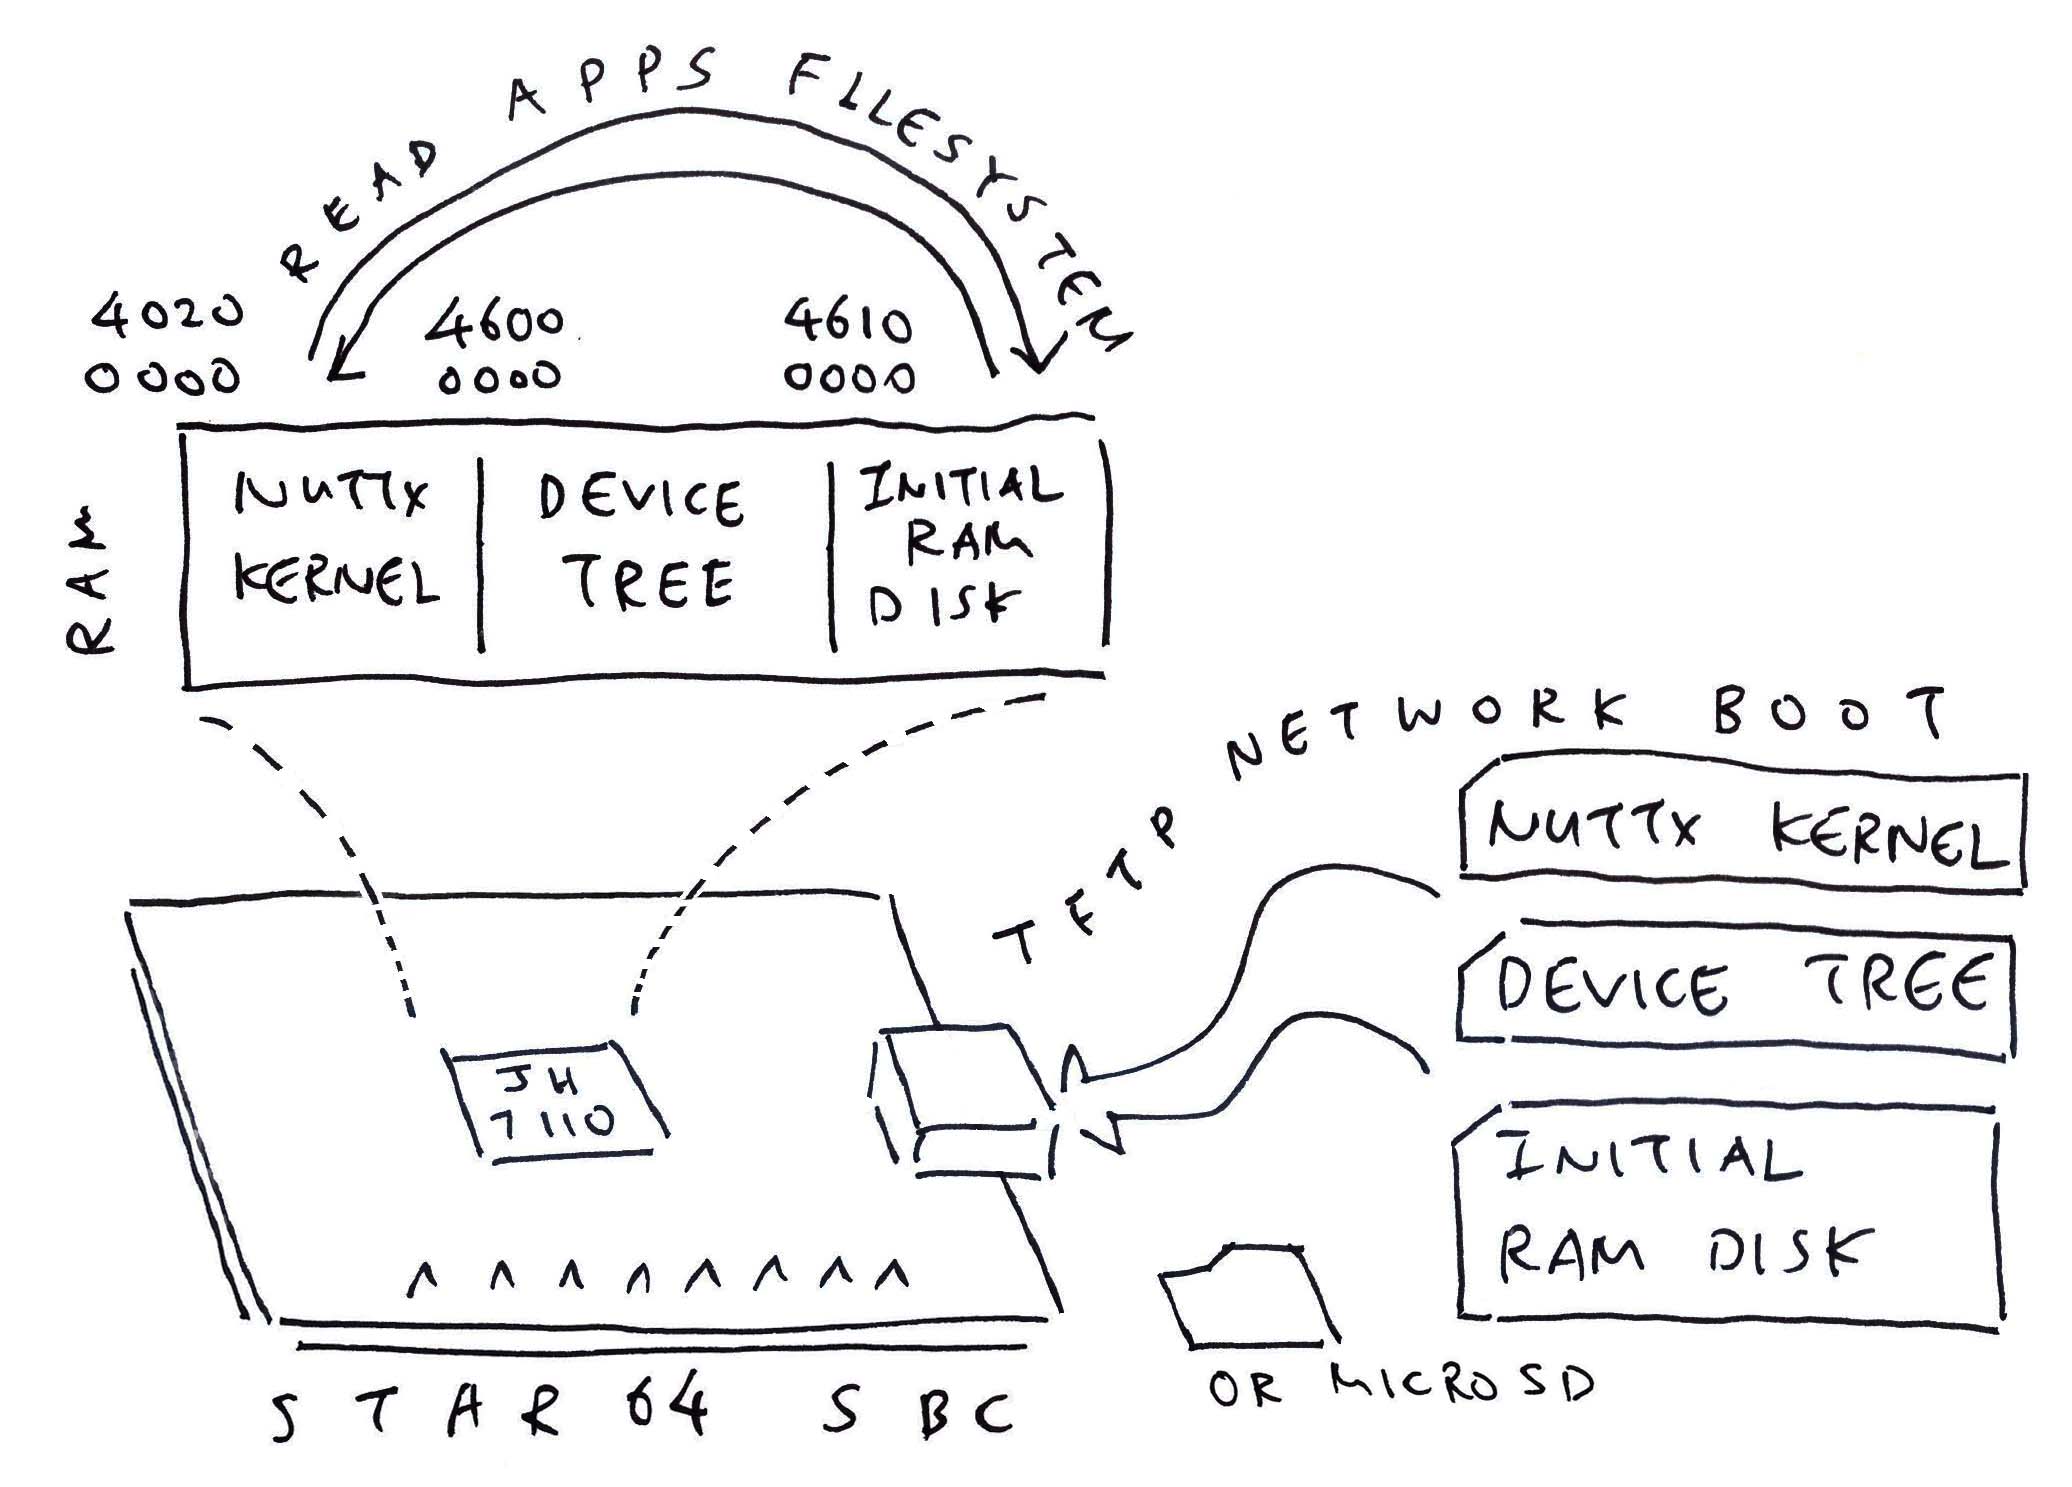 READ APPS FILESYSTEM
4020 4600 4610
0000 0000 0000
RAM
NUTTX KERNEL
DEVICE TREE
INITIAL RAM DISK
TFTP NETWORK BOOT
NUTTX KERNEL
DEVICE TREE
INITIAL
RAM DISK
JH
7110
OR MICROSD
STAR64 SBC